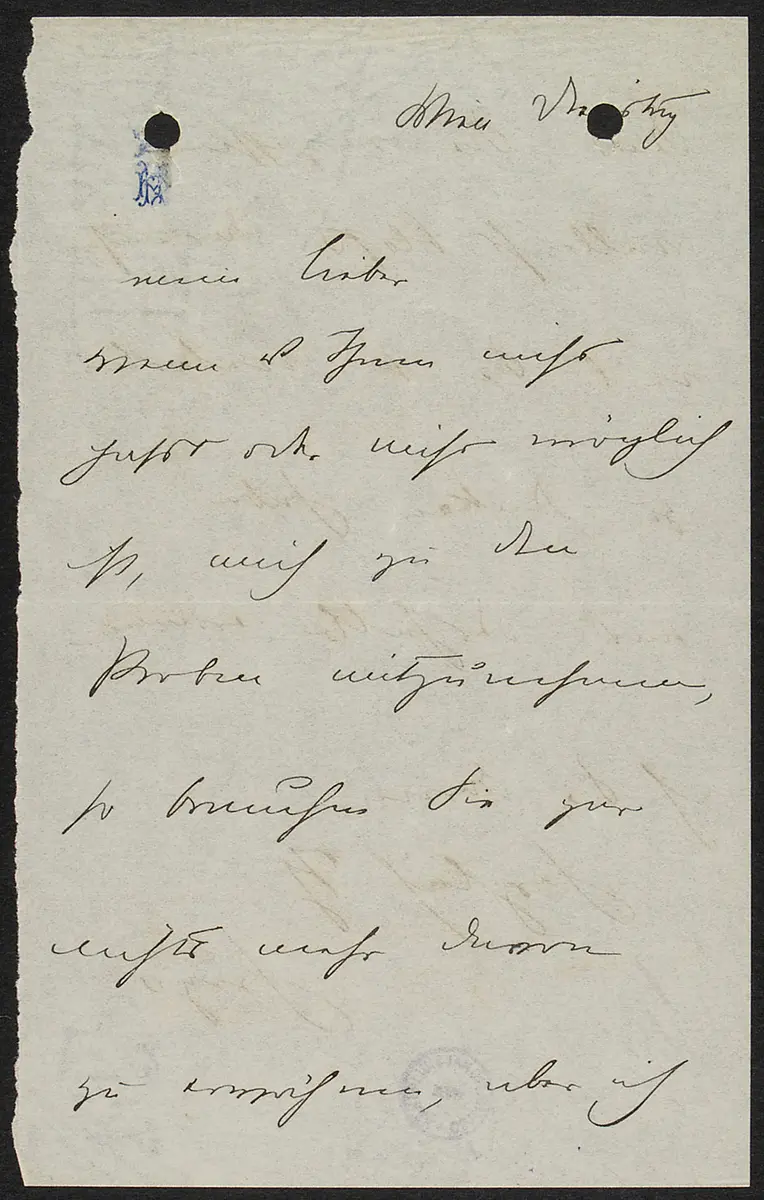 Wien Dienstag
mein lieber
wenn es Ihnen nicht
passt oder nicht möglich
ist, mich zu den
Proben mitzunehmen,
so brauchen Sie gar
nichts mehr davon
zu erwähnen, aber ich